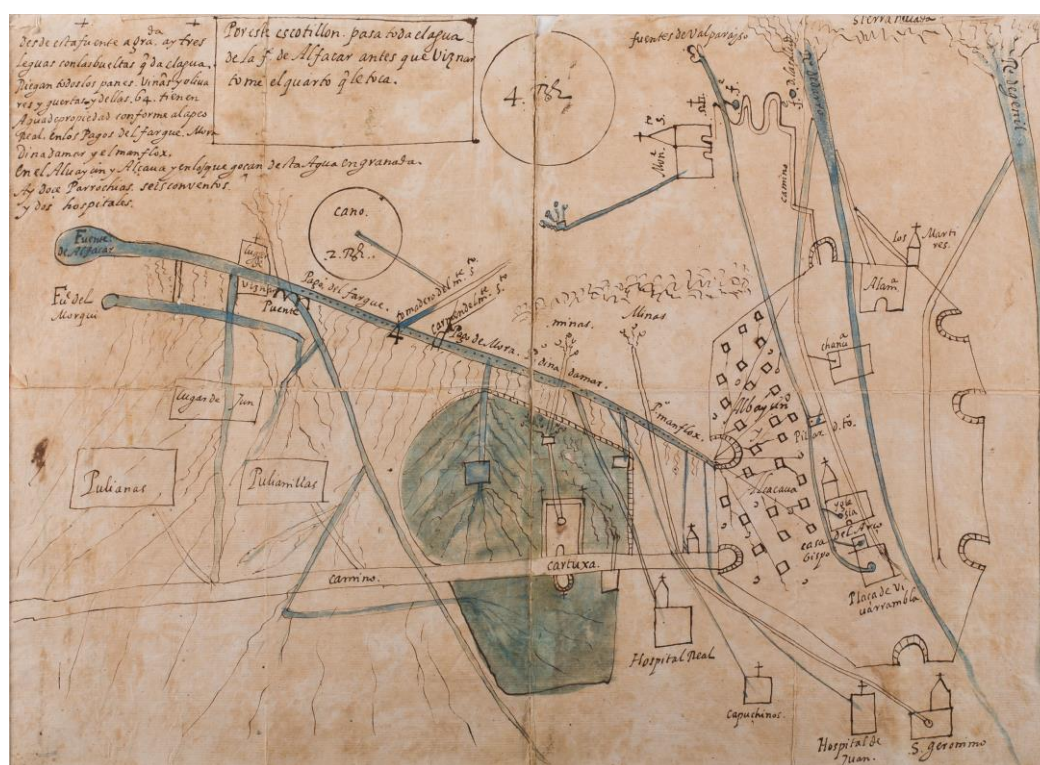 desde esta fuente a gra.da ay tres
leguas con las bueltas q̃ da el agua.
Riegan todos los panes. Viñas y oliua
res y guertas, y dellas. 64. tienen
Agua de propiedad conforme al apeo
Real. en los Pagos del fargue. Mora
dinadamar y el manflox.
En el Aluayçin y Alcaua y en los que goçan desta Agua en granada.
Ay doce Parrochias. seis conventos.
y dos hospitales.
Por este escotillon. pasa toda el agua
de la f.te de Alfacar antes que Viznar
tome el quarto q̃ le toca.
4. R.
fuentes de Valparayso
Sierra
R. de genil
camino
cano.
2. R.
Fuente
de Alfacar
lugar
Viznar
Puente
F.te del
Morqui
Pago del fargue.
tomadero del m.te S.to
carmen del m.te S.to
Pago de Mora.
P.o dinadamar.
P.o manflox.
minas.
Minas
los Marti
res.
Alam.a
chanc.a
Albayçin
y
Alcaçaua
Pilar d. to.
ygle
sia
casa
bispo
del Arço
Plaça de Vi
uarrambla
lugar de Jun
Pulianas
Pulianillas
camino.
cartuxa.
Hospital Real
Capuchinos.
Hospital de
Juan.
S. geronimo